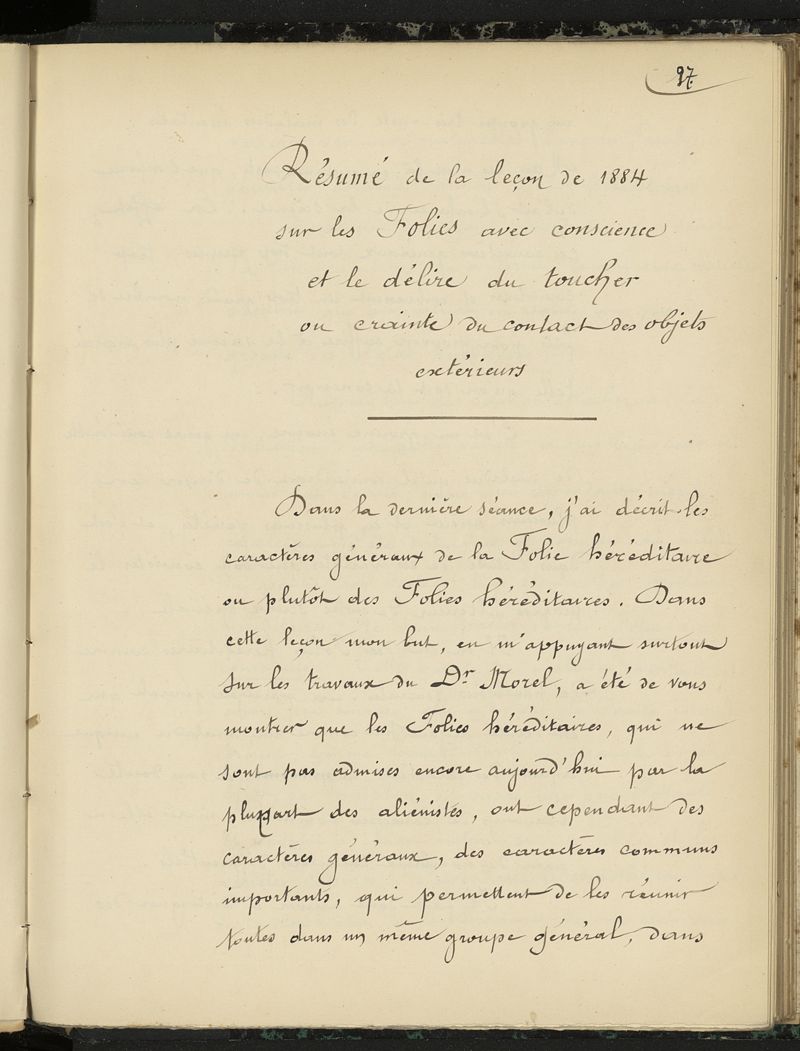 97.
Résumé de la leçon de 1884
sur les Folies avec conscience
et le délire du toucher
ou crainte du contact des objets
extérieurs
Dans la dernière séance, j'ai décrit les
caractères généraux de la Folie héréditaire
ou plutôt des Folies héréditaires. Dans
cette leçon mon but, en m'appuyant surtout
sur les travaux du Dr Morel, a été de vous
montrer que les Folies héréditaires, qui ne
sont pas admises encore aujourd'hui par la
plupart des aliénistes, ont cependant des
caractères généraux, des caractères communs
importants, qui permettent de les réunir
toutes dans un même groupe général, dans